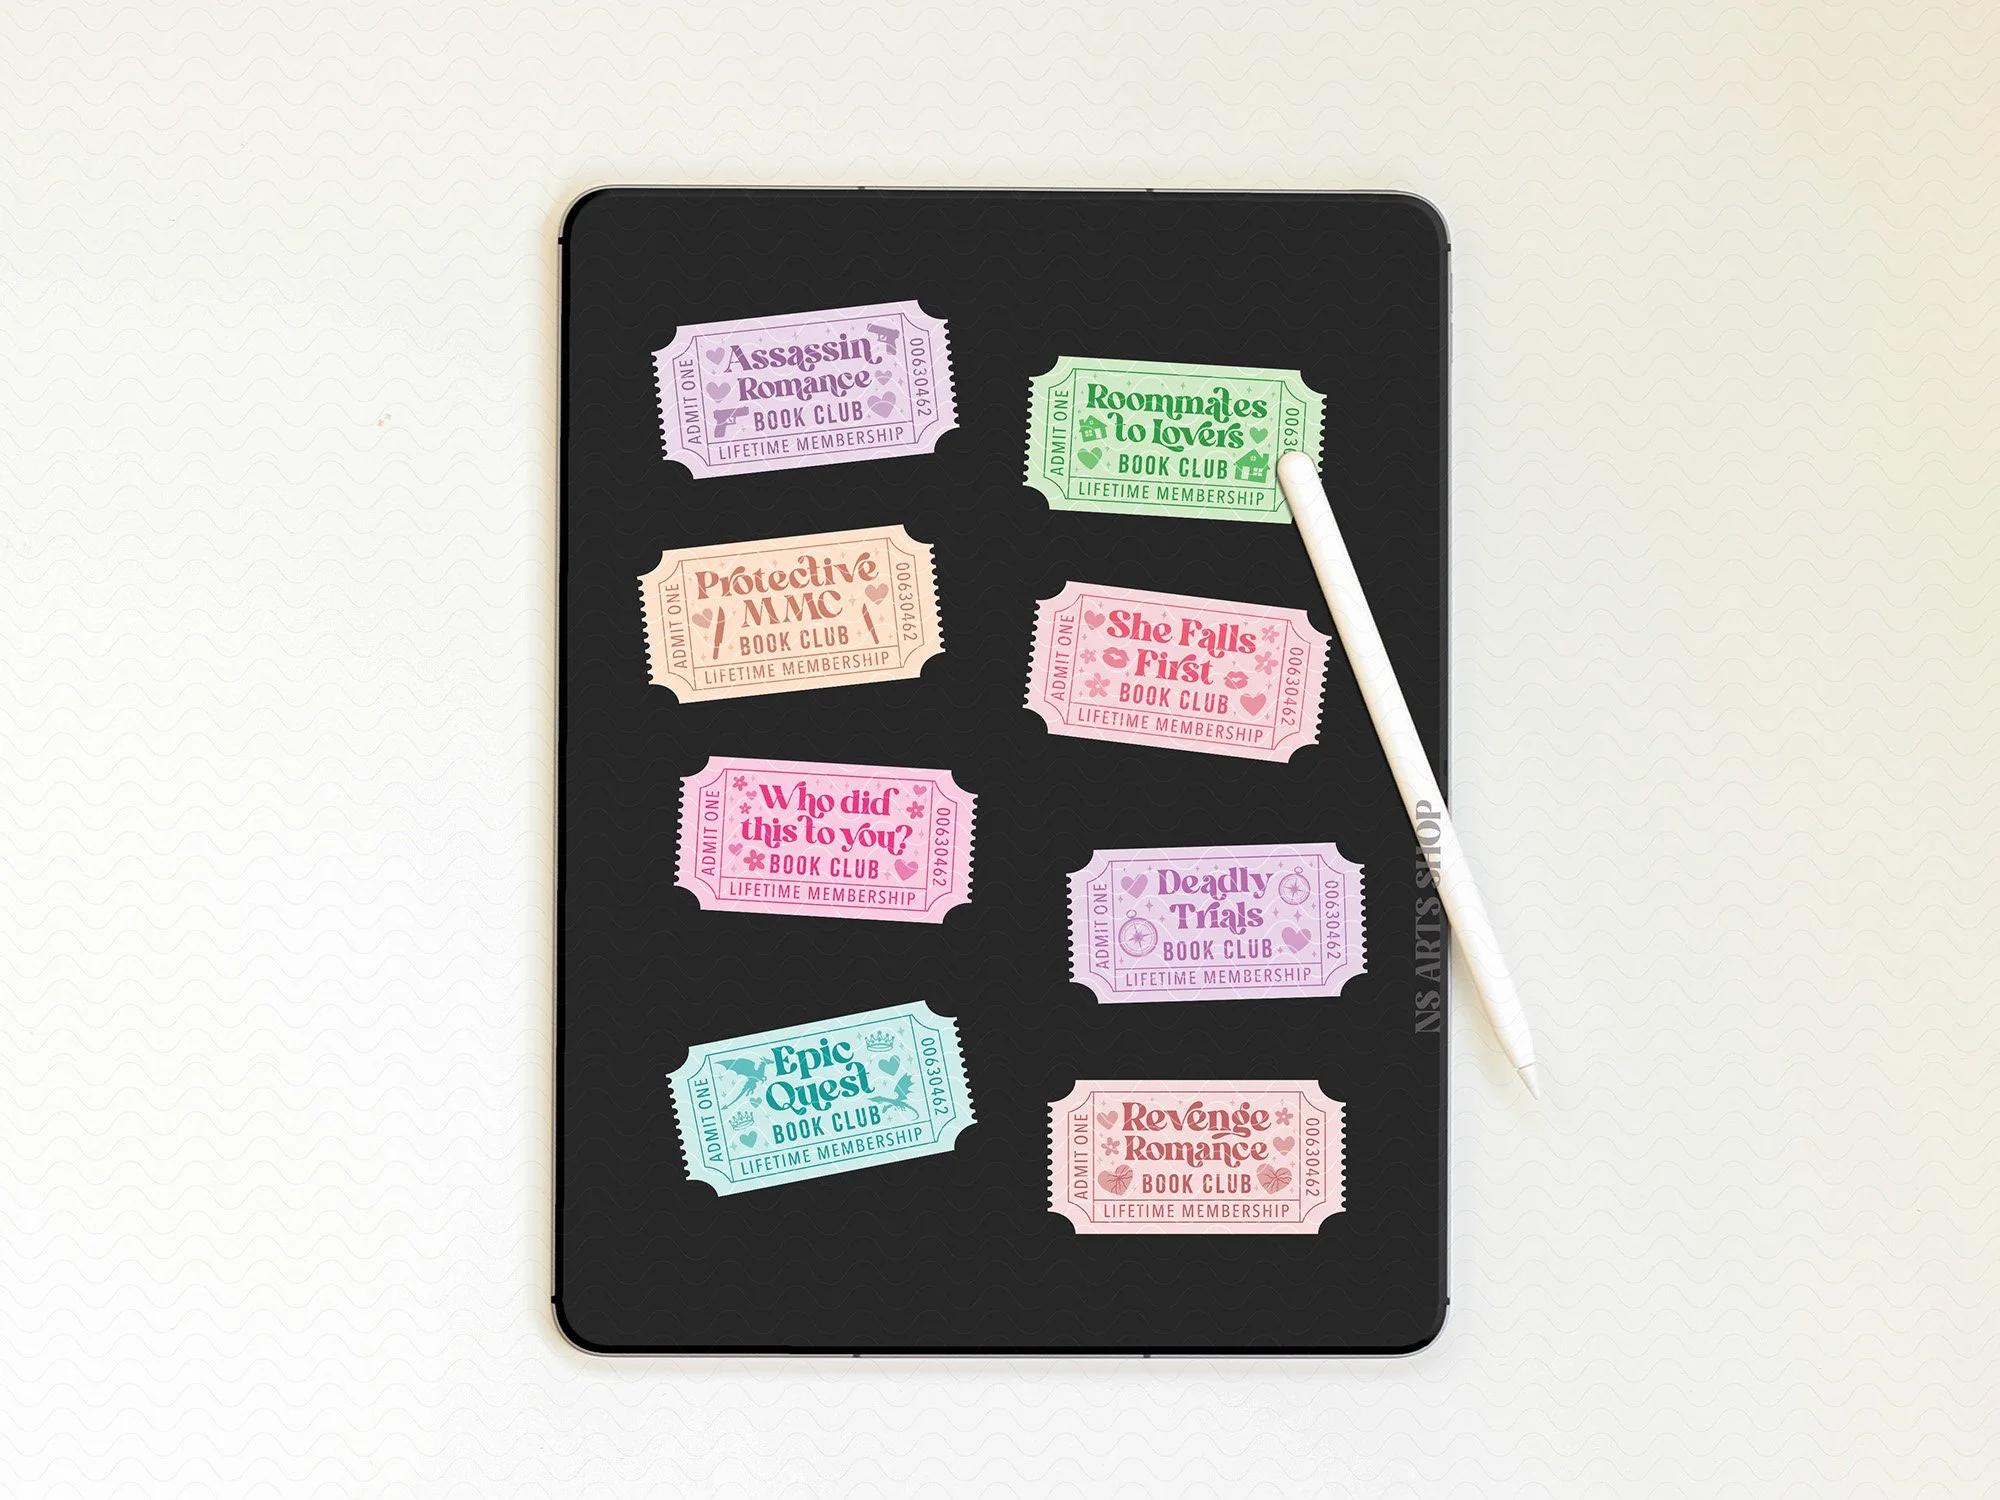 ADMIT ONE
Assassin
Romance
BOOK CLUB
LIFETIME MEMBERSHIP
00630462
ADMIT ONE
Roommates
to Lovers
BOOK CLUB
LIFETIME MEMBERSHIP
0063
ADMIT ONE
Protective
MMC
BOOK CLUB
LIFETIME MEMBERSHIP
00630462
ADMIT ONE
She Falls
First
BOOK CLUB
LIFETIME MEMBERSHIP
00630462
ADMIT ONE
Who did
this to you?
BOOK CLUB
LIFETIME MEMBERSHIP
00630462
ADMIT ONE
Deadly
Trials
BOOK CLUB
LIFETIME MEMBERSHIP
00630462
ADMIT ONE
Epic
Quest
BOOK CLUB
LIFETIME MEMBERSHIP
00630462
ADMIT ONE
Revenge
Romance
BOOK CLUB
LIFETIME MEMBERSHIP
00630462
NS ARTS SHOP